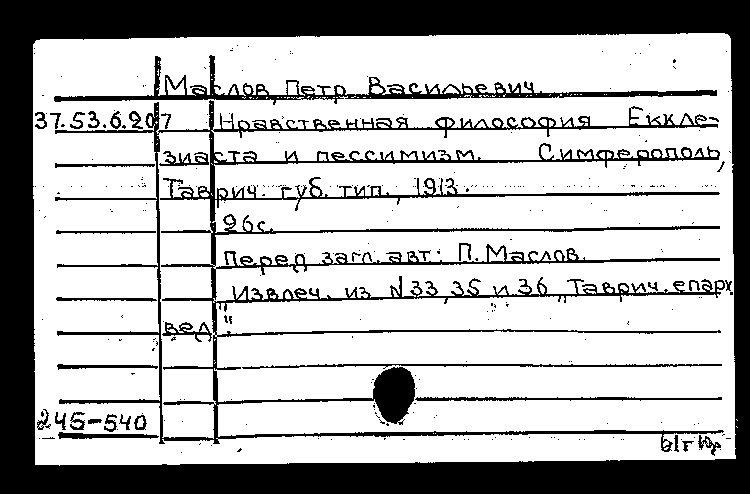 Маслов, Петр Васильевич.
37.53.6.207 Нравственная философия Еккле-
зиаста и пессимизм. Симферополь,
Таврич. губ. тип., 1913.
26с.
Перед загл. авт: П. Маслов.
Извлеч. из N 33, 35 и 36 „Таврич. епарх
вед."
245-540